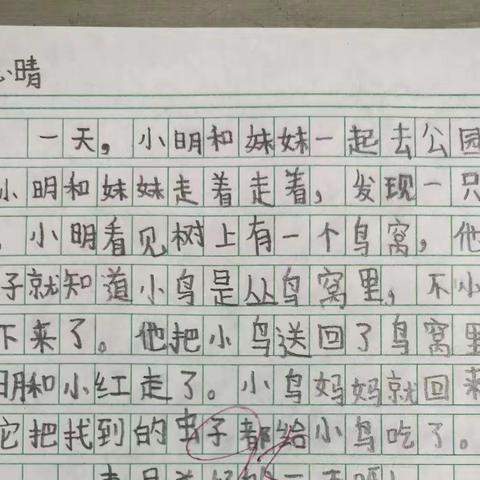 晴
一天，小明和妹妹一起去公园
小明和妹妹走着走着，发现一只
小明看见树上有一个鸟窝，他
子就知道小鸟是从鸟窝里，不小
下来了。他把小鸟送回了鸟窝里
明和小红走了。小鸟妈妈就回来
它把找到的虫子都给小鸟吃了。